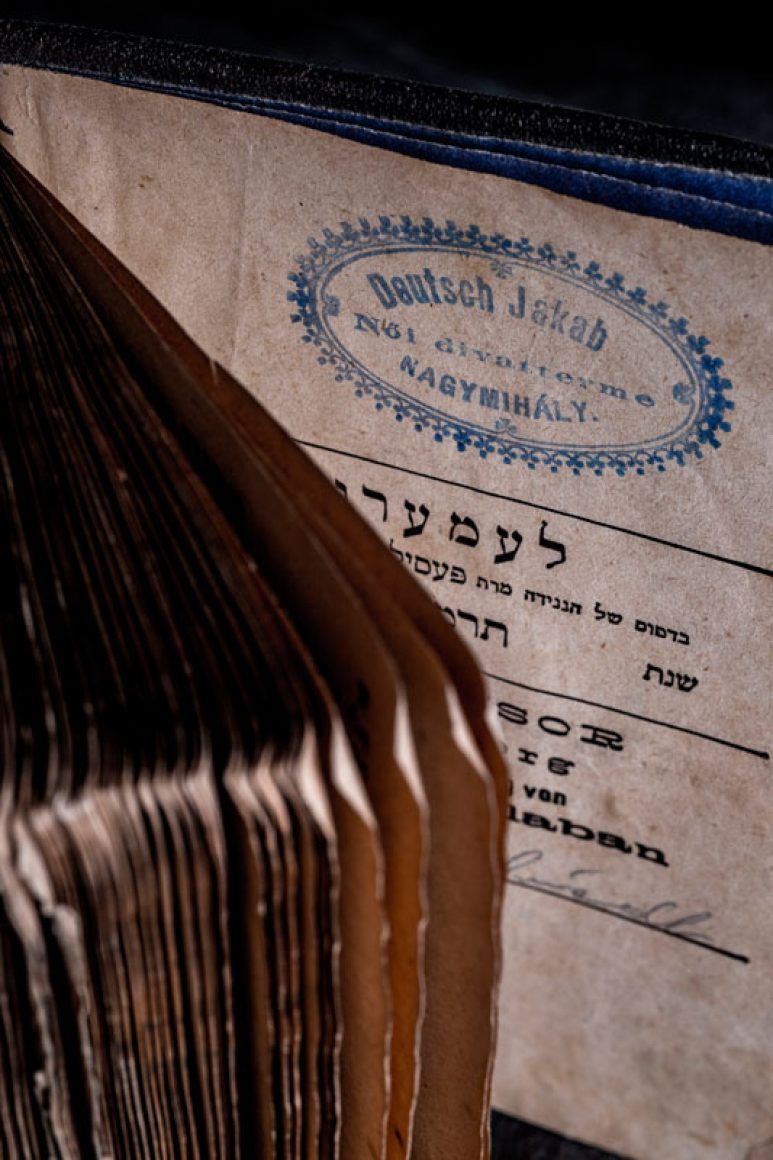 Deutsch Jakab
Női divatterme
NAGYMIHÁLY.
לעמערג
בדפוס של הנגידה מרת פעסיל
שנת תרמ
SOR
erg
von
laban